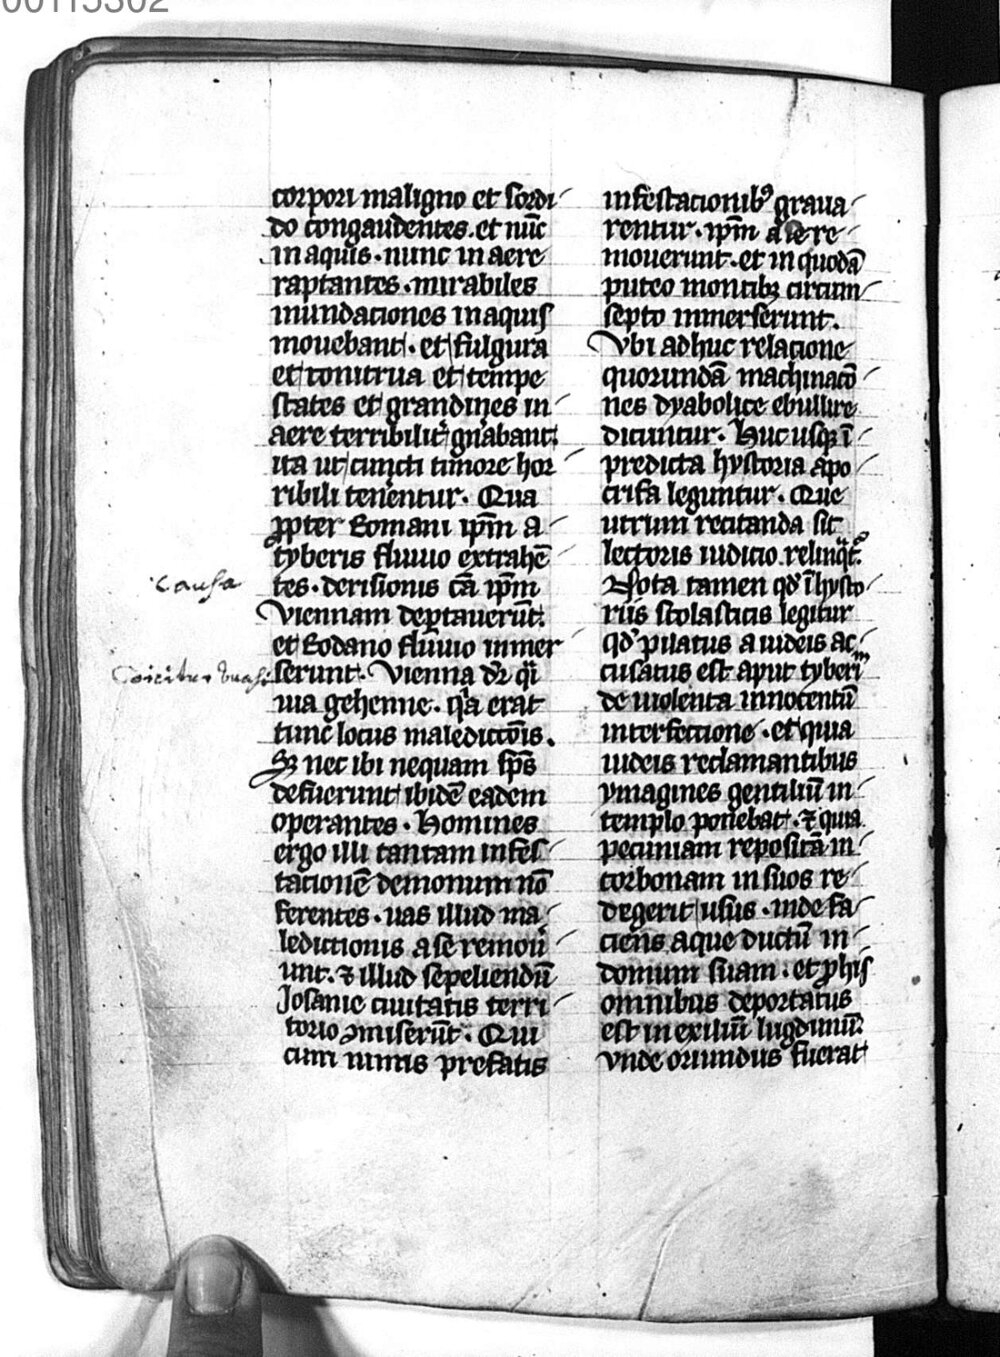 00115302
corpori maligno et sordi
do congaudentes. et nu̅c
in aquis. nunc in aere
raptantes. mirabiles
inundationes in aquis
mouebant. et fulgura
et tonitrua et tempe
states et grandines in
aere terribilit᷑ gn̅abant.
ita ut cuncti timore hor
ribili tenentur. Qua
ꝓpter Romani ip̅m a
tyberis fluuio extrahe̅
tes. derisionis ca̅ ip̅m
causa
viennam deꝑtaueru̅t.
et Rodano fluuio inmer
serunt. Vienna dr̅ q̅i
uia gehenne. q̅a erat
tunc locus maledicto̅is.
Sꝫ nec ibi nequam sp̅s
defuerunt ibide̅ eadem
operantes. Homines
ergo illi tantam infes
tacione̅ demonum no̅
ferentes. uas illud ma
ledictionis a se remou̅
unt. ⁊ illud sepeliendu̅
Josanie ciuitatis terri
torio ꝯmiseru̅t. Qui
cum nimis prefatis
infestacionibꝰ graua
rentur. ip̅m a se re
mouerunt. et in quoda̅
puteo montibꝫ circum
septo inmerserunt.
Vbi adhuc relacione
quorunda̅ machinaco̅
nes dyabolice ebullire
dicuntur. Huc usqꝫ i̅
predicta hystoria apo
crifa leguntur. Que
utrum recitanda sit
lectoris iudicio relinq̅t᷑.
Nota tamen qd̅ i̅ hysto
riis scolasticis legitur
qd̅ pilatus a iudeis ac
cusatus est aput tyberiu̅
de uiolenta innocentu̅
interfectione. et quia
iudeis reclamantibus
ymagines gentiliu̅ in
templo ponebat. ⁊ quia
pecuniam reposita̅ in
corbonam in suos re
degerit usus. inde fa
ciens aque ductu̅ in
domum suam. et ꝓ hiis
omnibus deportatus
est in exiliu̅ lugdunu̅.
vnde oriundus fuerat